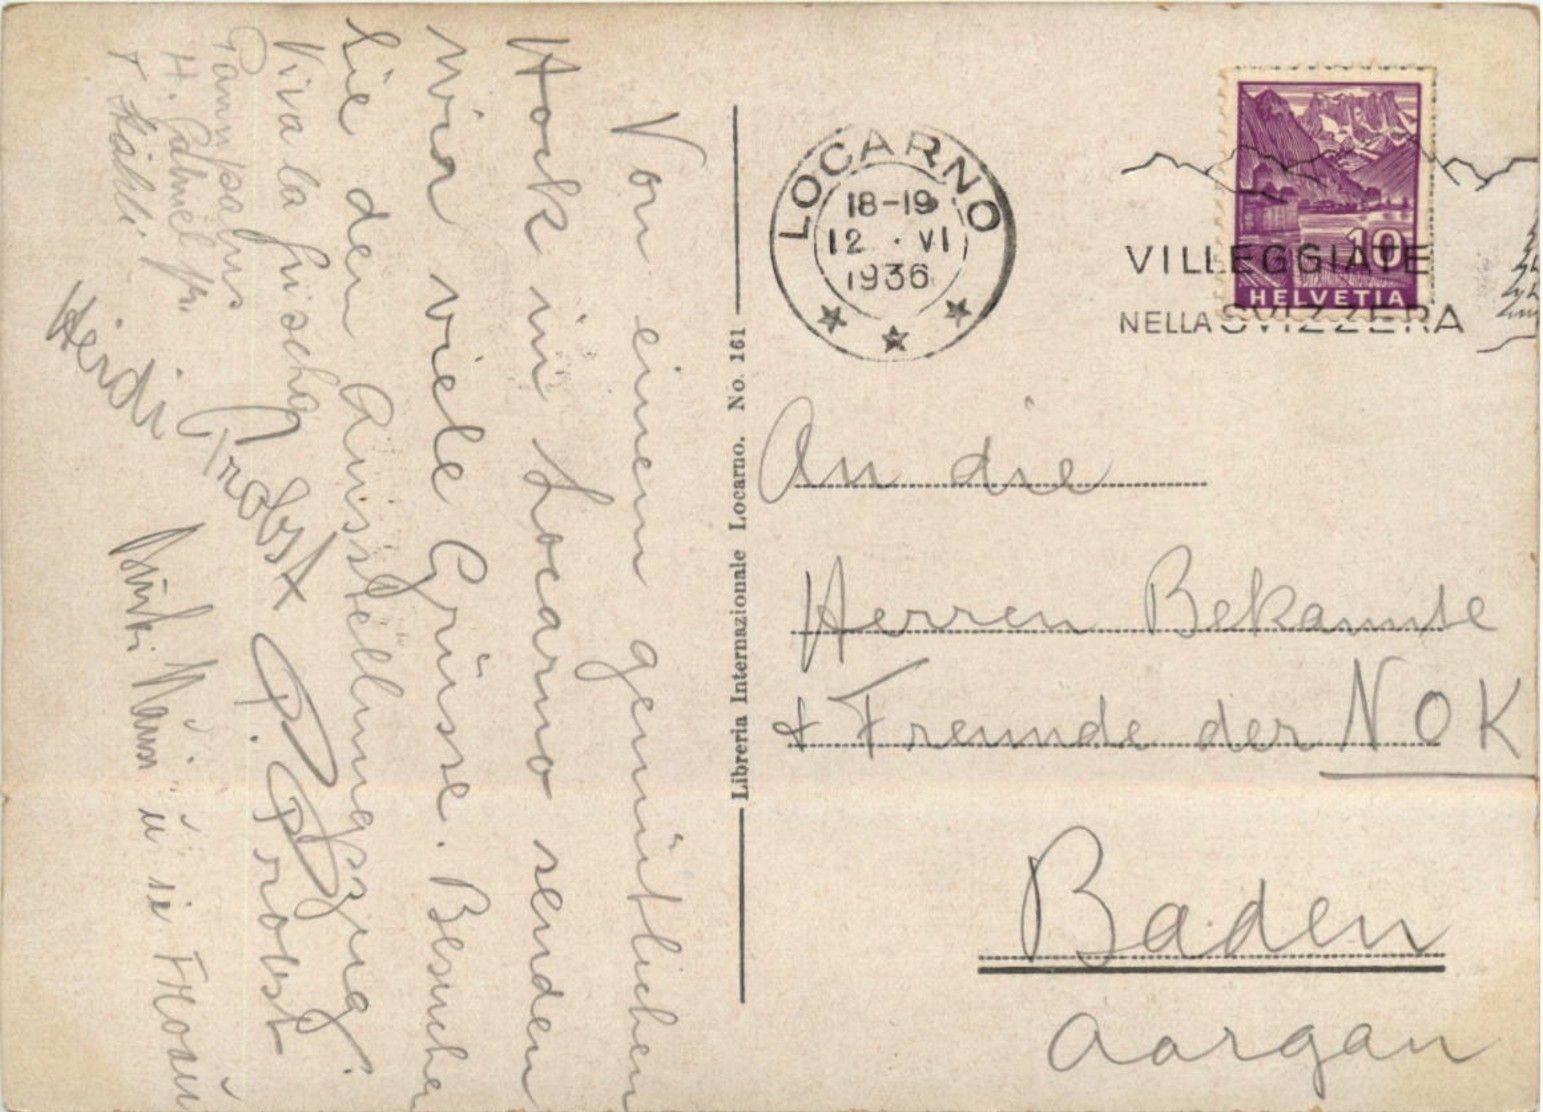 Von einem gemütlichen
Hock in Locarno senden
wir viele Grüsse. Besuchen
Sie den Ausstellungszug
Viva la
P. Probst
H.
Heidi Probst
Libreria Internazionale Locarno. No. 161
LOCARNO
18-19
12 · VI
1936
VILLEGGIATE
NELLA SVIZZERA
10
HELVETIA
An die
Herren Bekannte
+ Freunde der NOK
Baden
Aargau